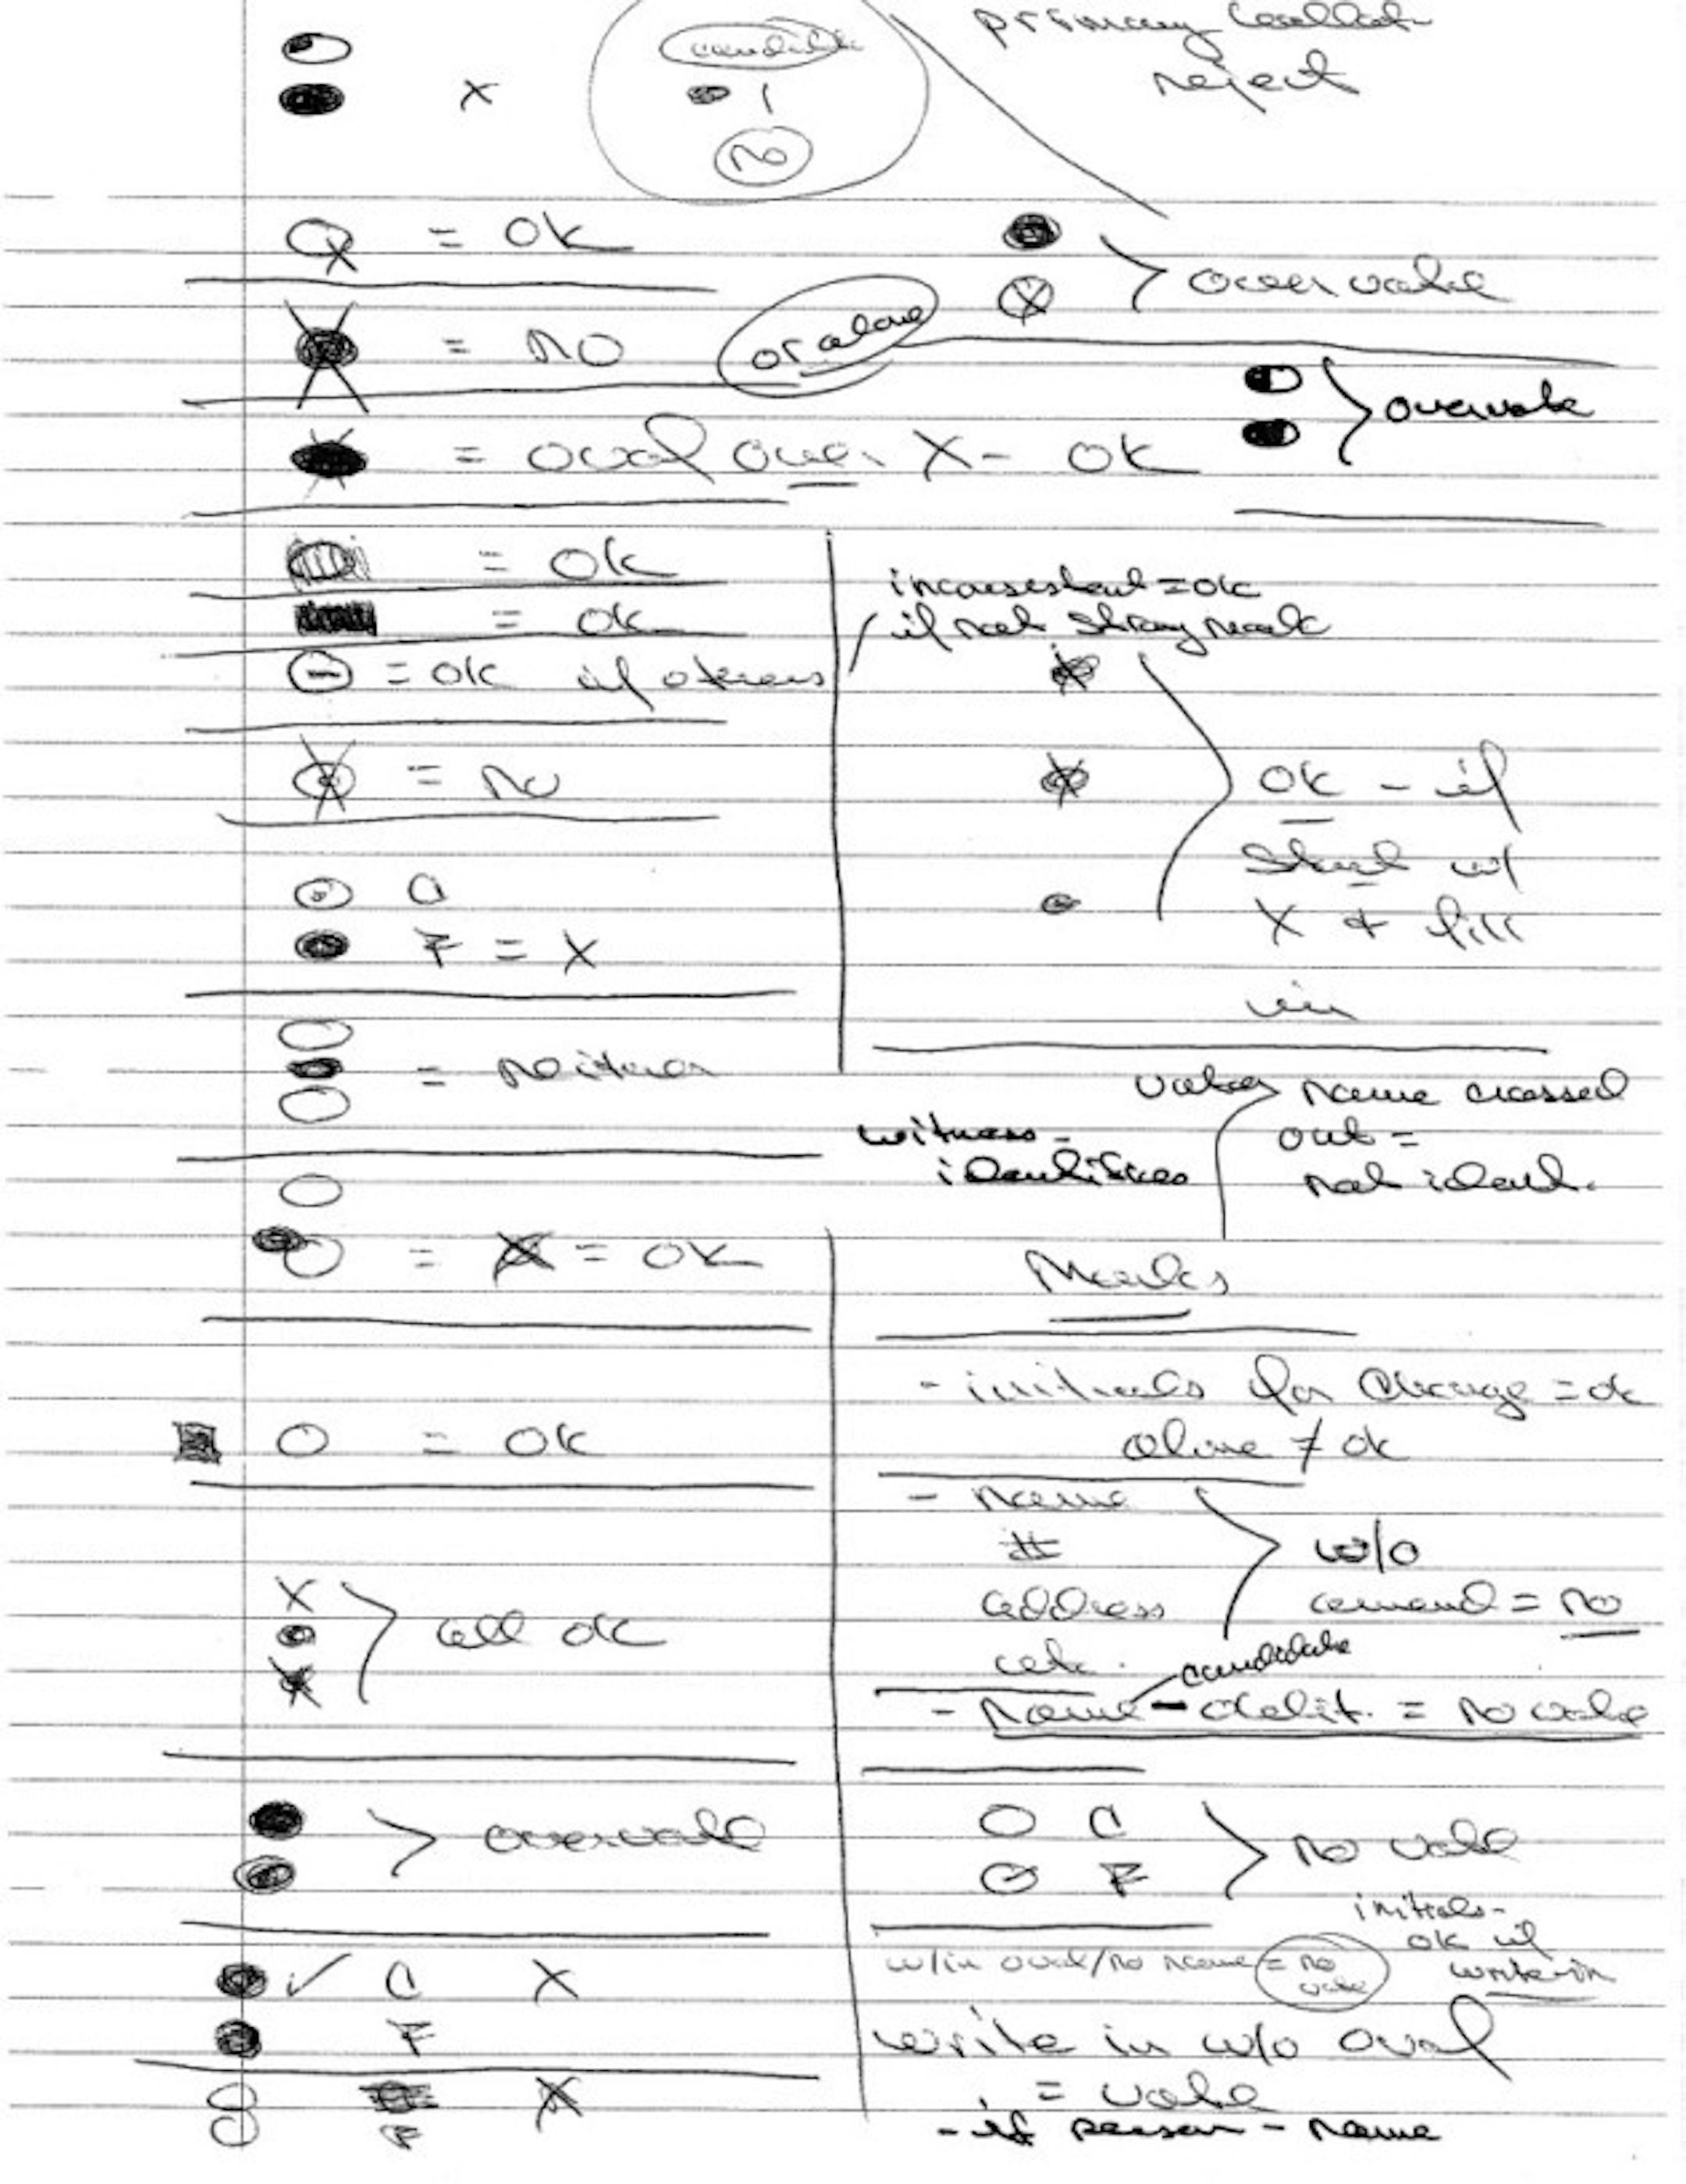 candidate
primary
reject
X
1
no
X = OK
overvote
= no
or alone
overvote
= oval over X - OK
= OK
inconsistent = ok
= OK
if not stray mark
= OK if others
= no
OK - if
start w/
X & fill
in
C
F = X
= neither
votes name crossed
out =
witness -
identifies
not ident.
= X = OK
Marks
- initials for change = ok
alone ≠ ok
= OK
- name
#
address
etc.
w/o
= no
X
all ok
candidate
- Name - = no vote
overvote
C
F
no vote
initials -
ok if
write in
w/in oval/no name = no
vote
✓ C X
F
write in w/o oval
= vote
- if person - name
X
F